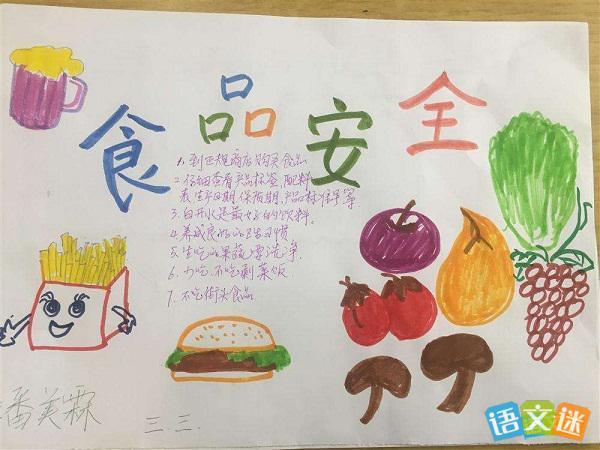 食品安全
1.到正规商店购买食品
2.仔细查看产品标签,配料
表生产日期,保质期,产品材保存等
3.白开水是最好的饮料.
4.养成良好的卫生习惯
5.生吃瓜果蔬要洗净.
6.少吃、不吃剩菜饭
7.不吃街头食品
潘美霖
三.三.
语文迷